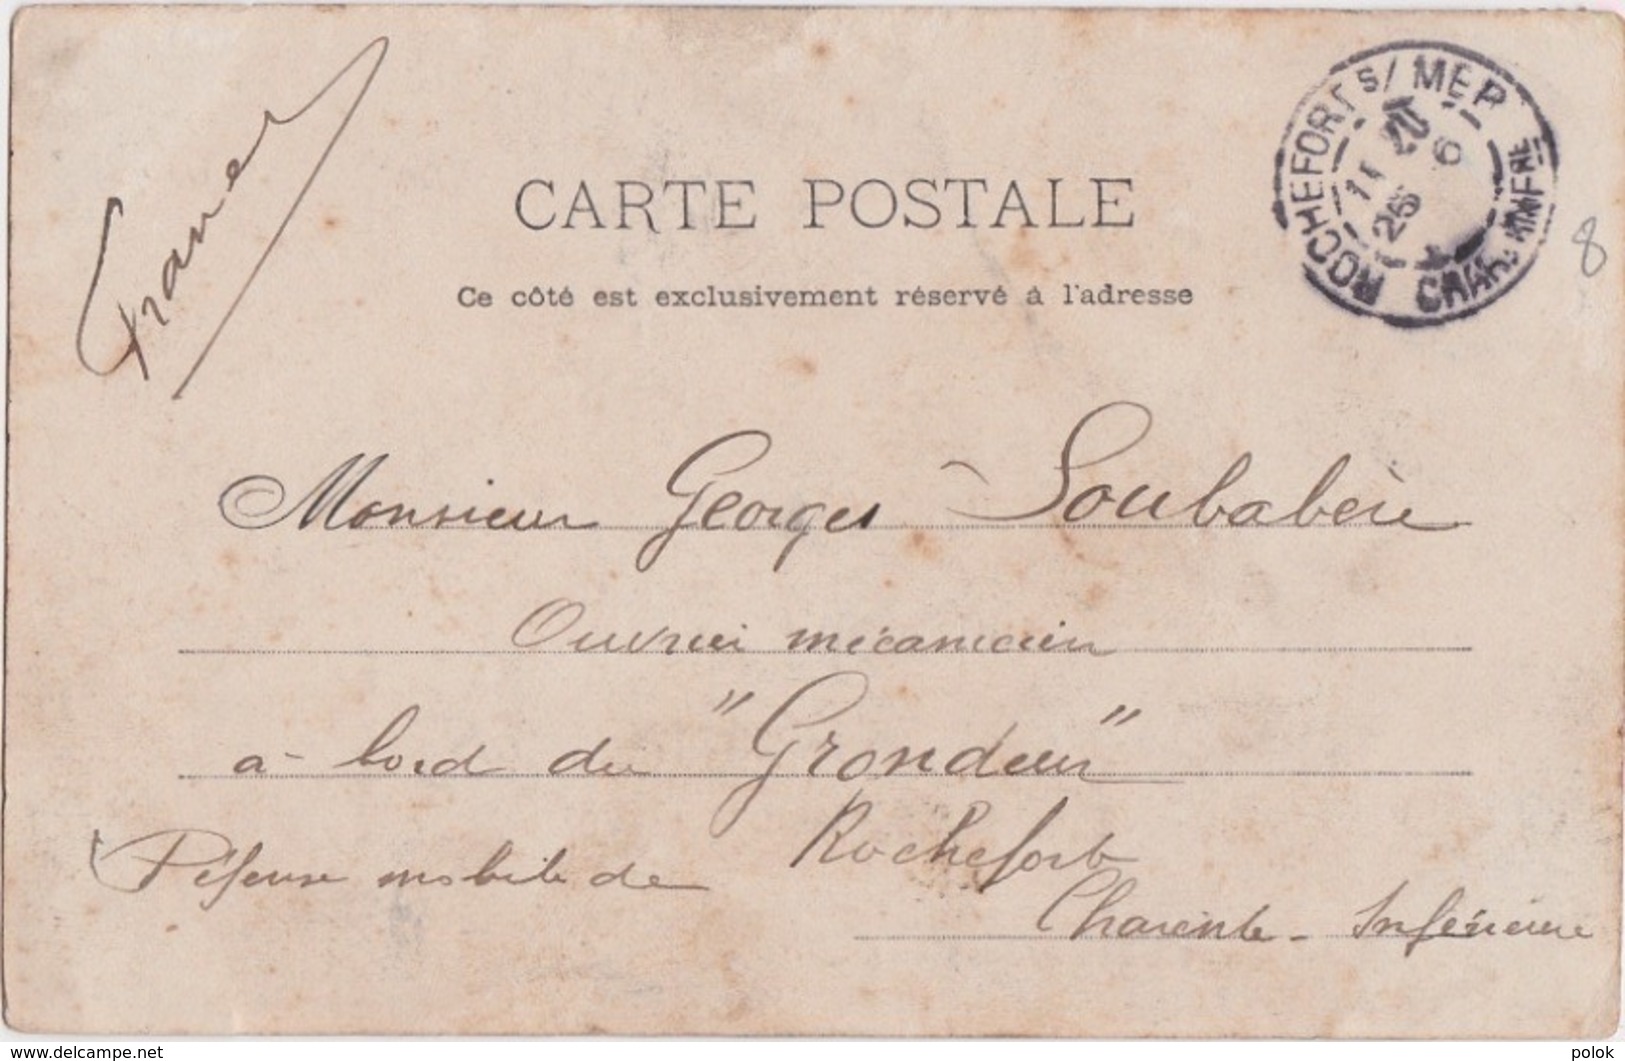 France
CARTE POSTALE
Ce côté est exclusivement réservé à l'adresse
ROCHEFORT S/ MER
CHAR. INFRE
25
6
8
Monsieur Georges Soubabère
Ouvrier mécanicien
à bord du "Grondeur"
Défense mobile de Rochefort
Charente-Inférieure
www.delcampe.net
polok